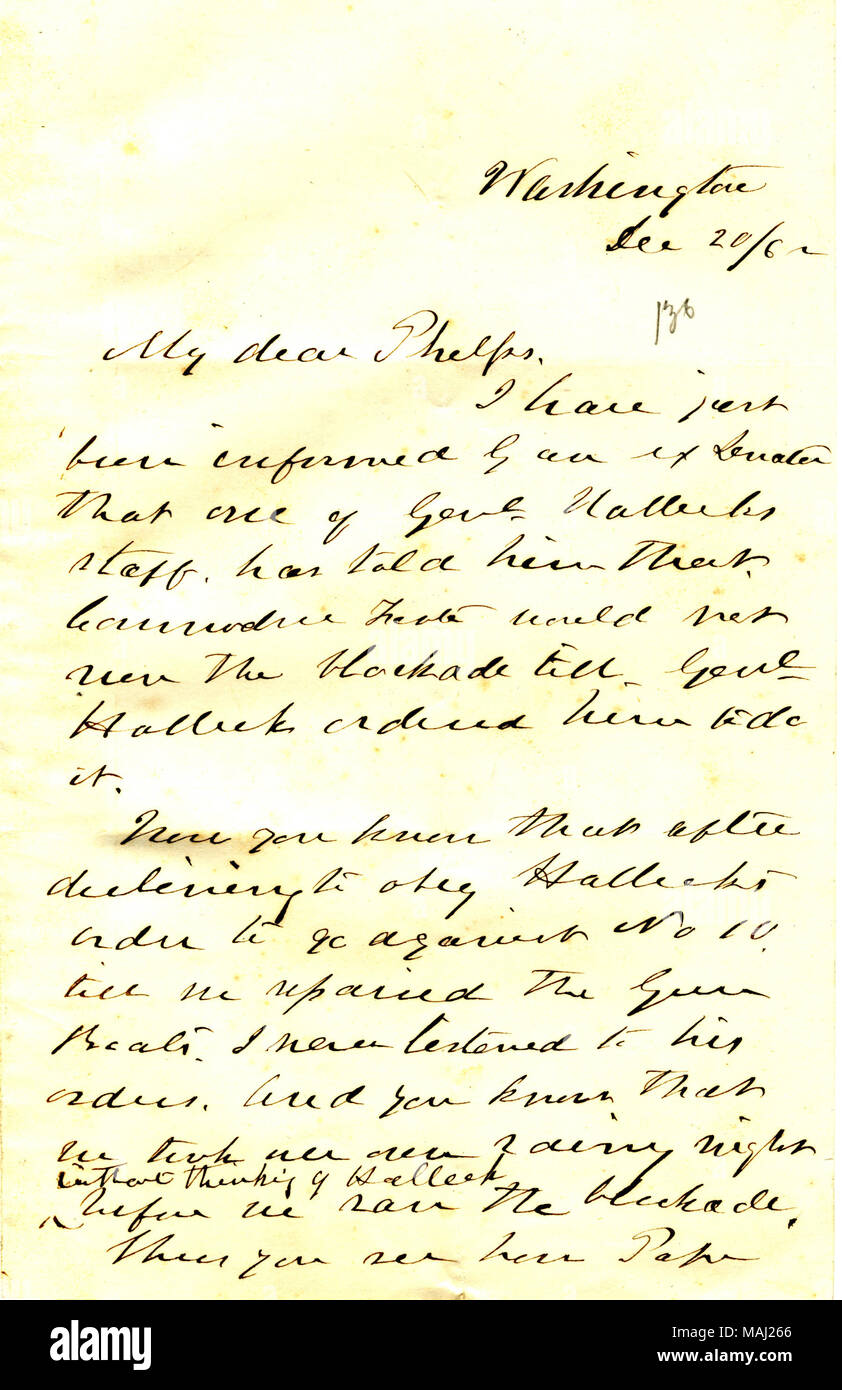 Washington
Dec 20/62
136
My dear Phelps.
I have just
been informed by an ex Senator
that one of Genl Hallecks
staff. has told him that
Commodore Foote would not
run the blockade till Genl
Halleck ordered him to do
it.
Now you know that after
declining to obey Hallecks
order to go against No 10.
till we repaired the Gun
Boats. I never listened to his
orders. And you know that
we took our own rainy night
without thinking of Halleck
before we ran the blockade.
Thus you see how Pope
alamy stock photo
MAJ266
www.alamy.com